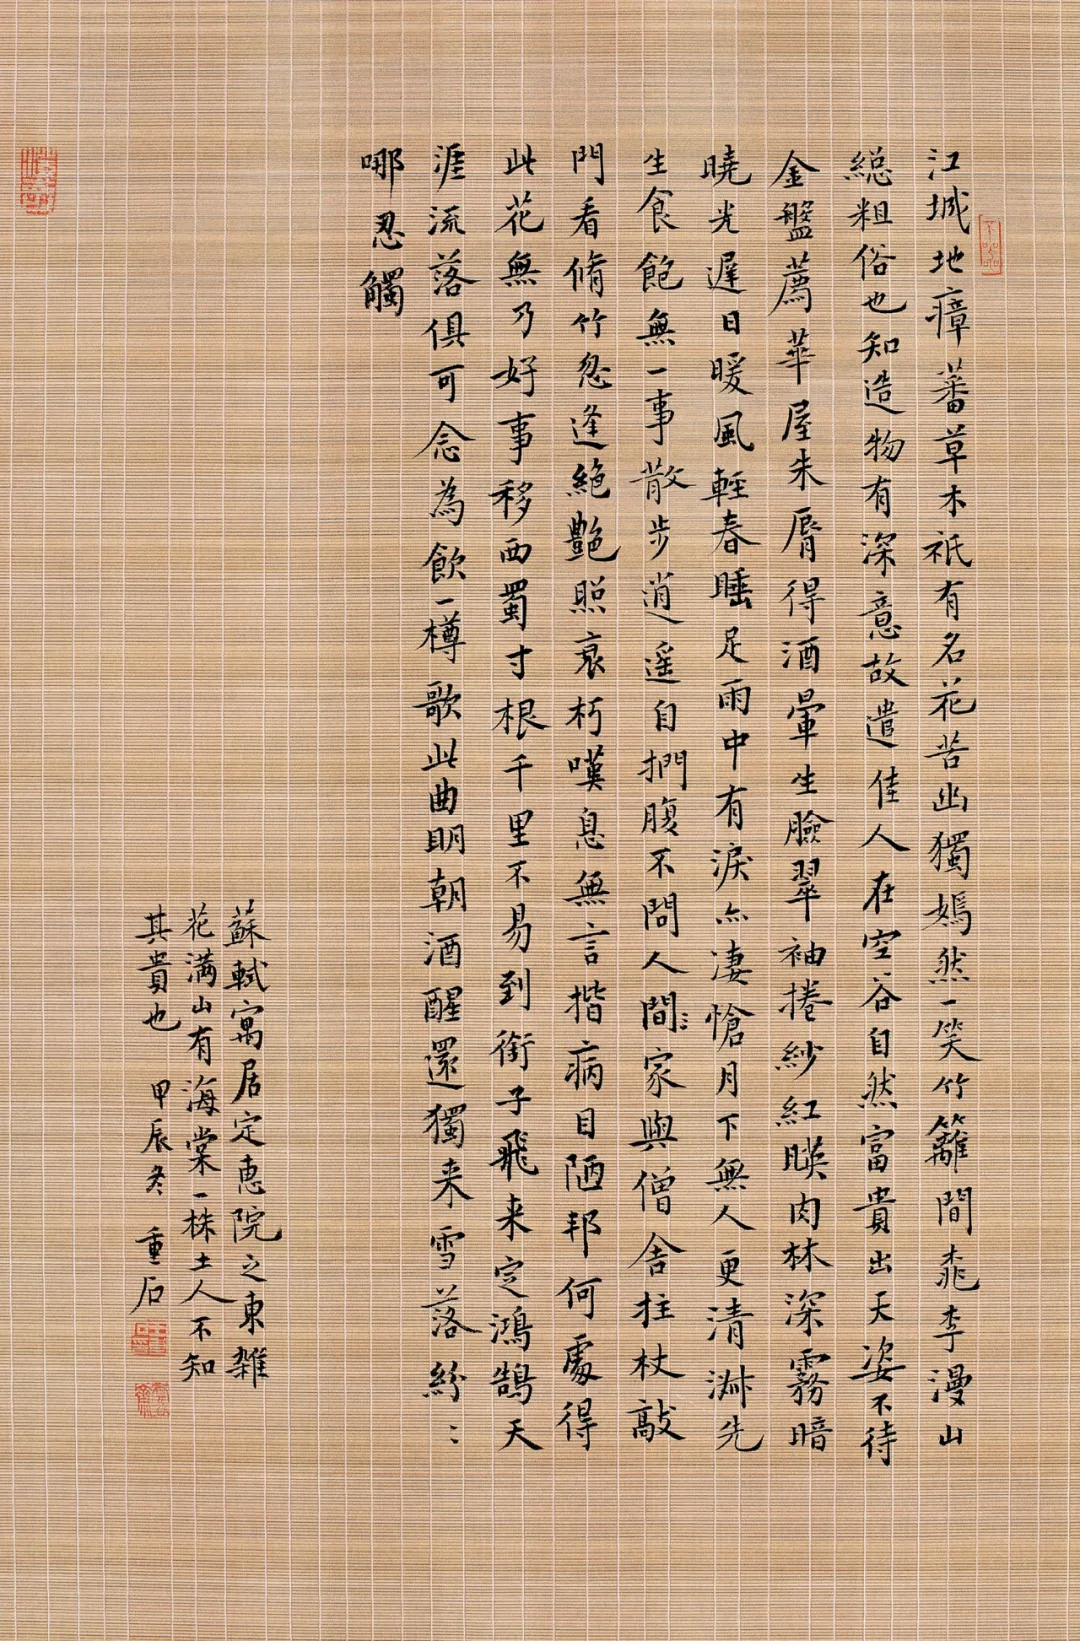 江城地瘴蕃草木祇有名花苦幽獨嫣然一笑竹籬間桃李漫山
総粗俗也知造物有深意故遣佳人在空谷自然富貴出天姿不待
金盤薦華屋朱脣得酒暈生臉翠袖捲紗紅暎肉林深霧暗
曉光遲日暖風輕春睡足雨中有淚亦凄愴月下無人更清淑先
生食飽無一事散步逍遥自捫腹不問人間家與僧舍拄杖敲
門看脩竹忽逢絶艶照衰朽嘆息無言揩病目陋邦何處得
此花無乃好事移西蜀寸根千里不易到銜子飛来定鴻鵠天
涯流落俱可念為飲一樽歌此曲明朝酒醒還獨来雪落紛〻
哪忍觸
蘇軾寓居定惠院之東雜
花滿山有海棠一株土人不知
其貴也 甲辰冬 重石